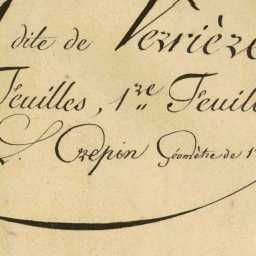 dite de Verrière
Feuilles, 1re Feuil
Crepin Géomètre de 1